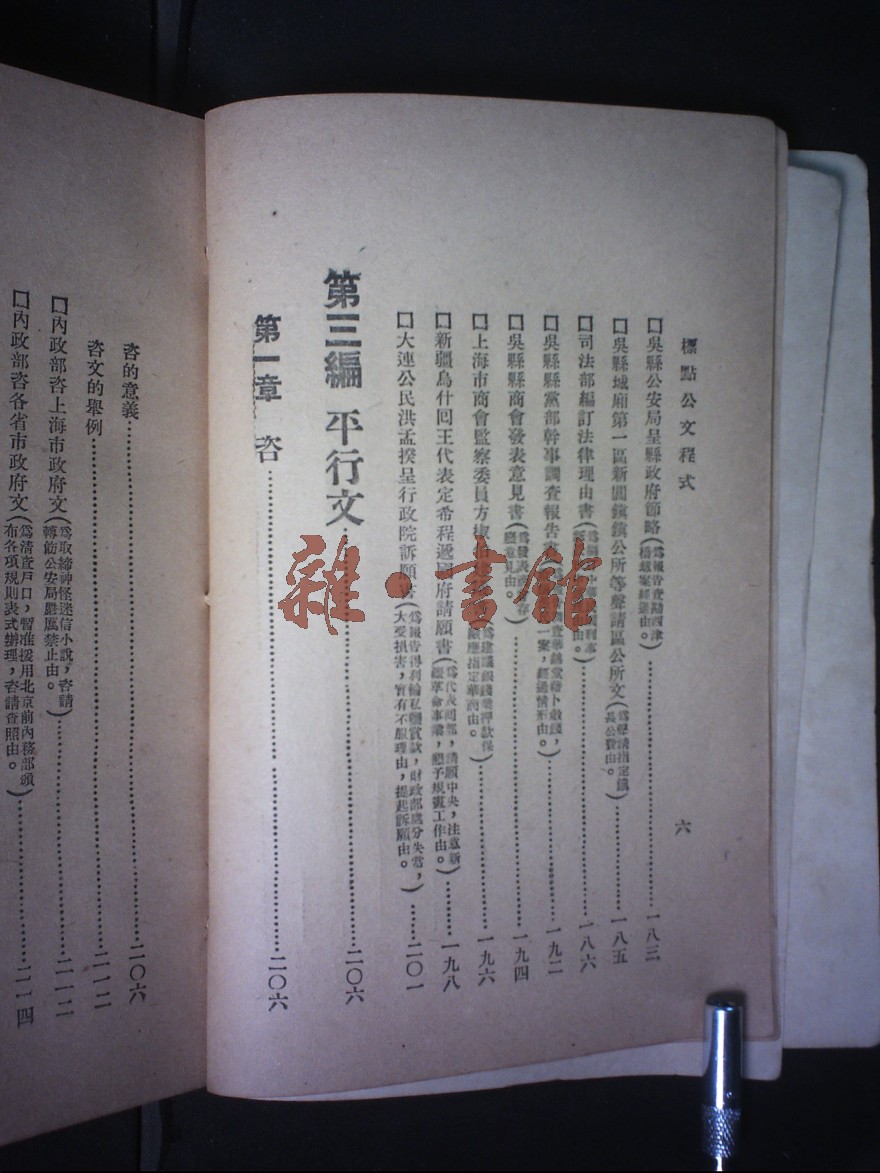 標點公文程式
六
□吳縣公安局呈縣政府節略(爲報告查勘西津橋越案經過由。)……一八三
□吳縣城廂第一區新閶鎭鎭公所等聲請區公所文(爲聲請指定鎭長公費由。)……一八五
□司法部編訂法律理由書(由。)……一八六
□吳縣縣黨部幹事調查報告(一案,經過情形由。)……一九二
□吳縣縣商會發表意見書(爲發表意見由。)……一九四
□上海市商會監察委員方椒伯建(爲建議銀錢業押款保應指定華商由。)……一九六
□新疆烏什回王代表定希程遞國府請願書(爲代表同部,請願中央,注意新疆革命事業,懇予規畫工作由。)……一九八
□大連公民洪孟揆呈行政院訴願書(爲報告得利輪私鹽賞款,財政部處分失當,大受損害,實有不服理由,提起訴願由。)……二〇一
第三編 平行文……二〇六
第一章 咨……二〇六
雜·書館
咨的意義……二〇六
咨文的舉例……二一二
□內政部咨上海市政府文(爲取締神怪迷信小說,咨請轉飭公安局嚴厲禁止由。)……二一二
□內政部咨各省市政府文(爲清查戶口,暫准援用北京前內務部頒布各項規則表式辦理,咨請查照由。)……二一四